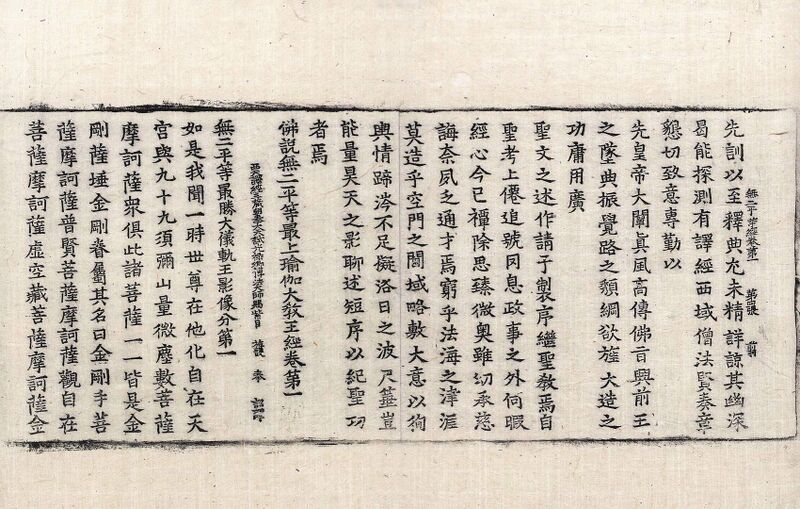 先訓以至釋典尤未精詳諒其幽深
無二平等經卷第一 第二張 前
曷能探測有譯經西域僧法賢奏章
懇切致意專勤以
先皇帝大闡真風高傳佛音興前王
之墜典振覺路之頹綱欲旌大造之
功庸用廣
聖文之述作請予製序繼聖教焉自
聖考上僊追號罔息政事之外何暇
經心今已禫除思臻微奧雖切承慈
誨奈夙乏通才焉窮乎法海之津涯
莫造乎空門之閫域略敷大意以徇
輿情蹄涔不足擬浴日之波尺箠豈
能量昊天之影聊述短序以紀聖功
者焉
佛說無二平等最上瑜伽大教王經卷第一
西天譯經三藏朝奉大夫試光祿卿傳法大師賜紫臣 施護 奉 詔譯
無二平等最勝大儀軌王影像分第一
如是我聞一時世尊在他化自在天
宮與九十九須彌山量微塵數菩薩
摩訶薩眾俱此諸菩薩一一皆是金
剛薩埵金剛眷屬其名曰金剛手菩
薩摩訶薩普賢菩薩摩訶薩觀自在
菩薩摩訶薩虛空藏菩薩摩訶薩金